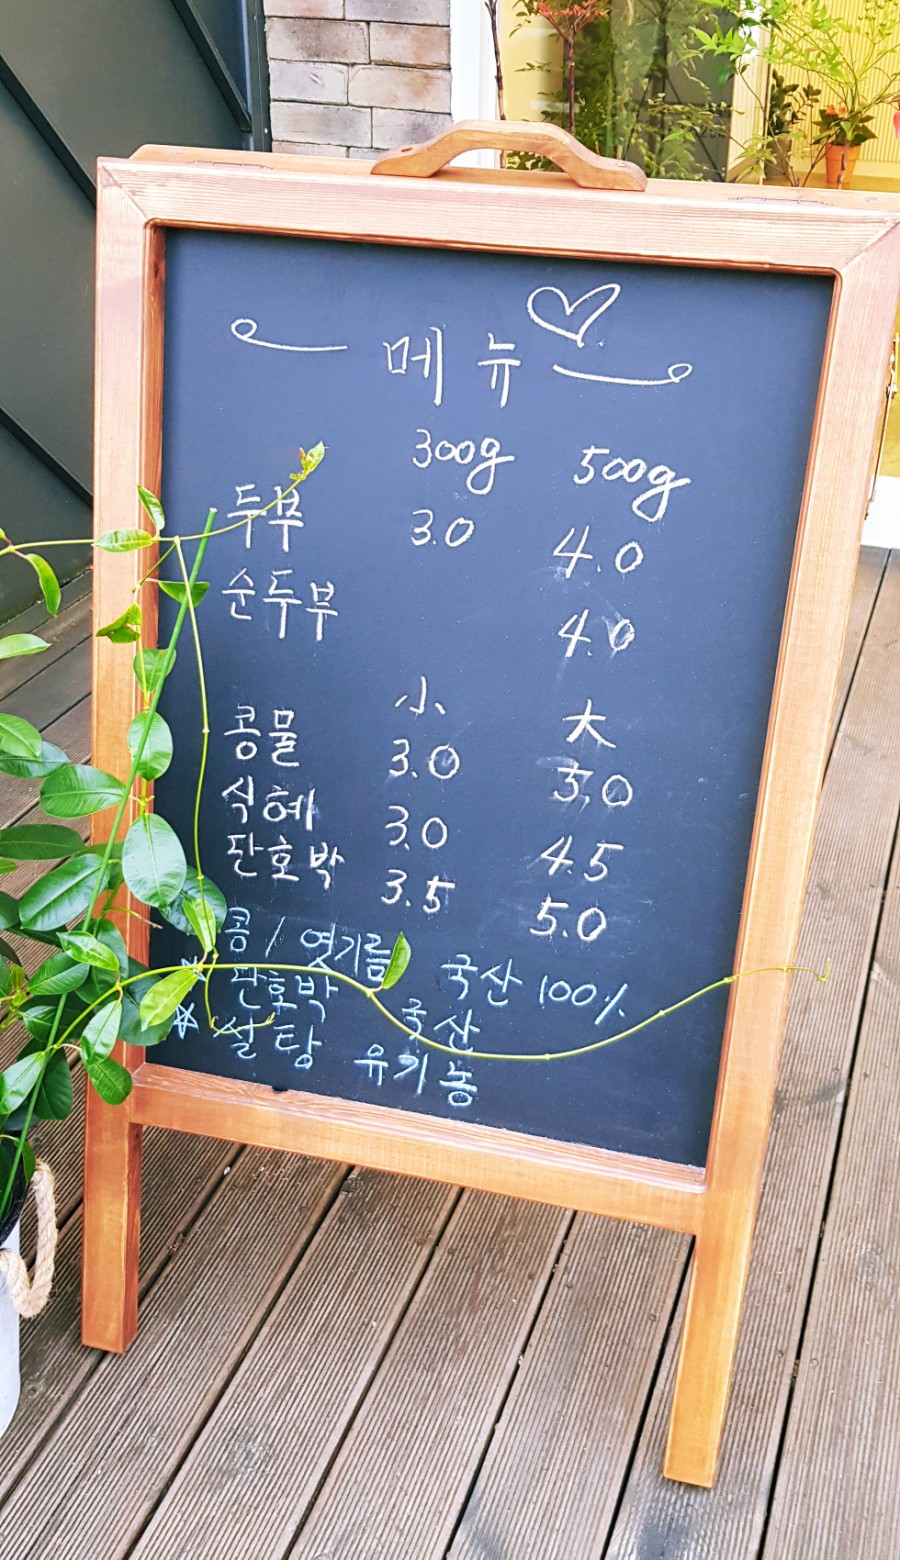 메뉴
300g 500g
두부 3.0 4.0
순두부 4.0
小 大
콩물 3.0 5.0
식혜 3.0 4.5
단호박 3.5 5.0
콩 / 엿기름 국산 100%
단호박 국산
설탕 유기농